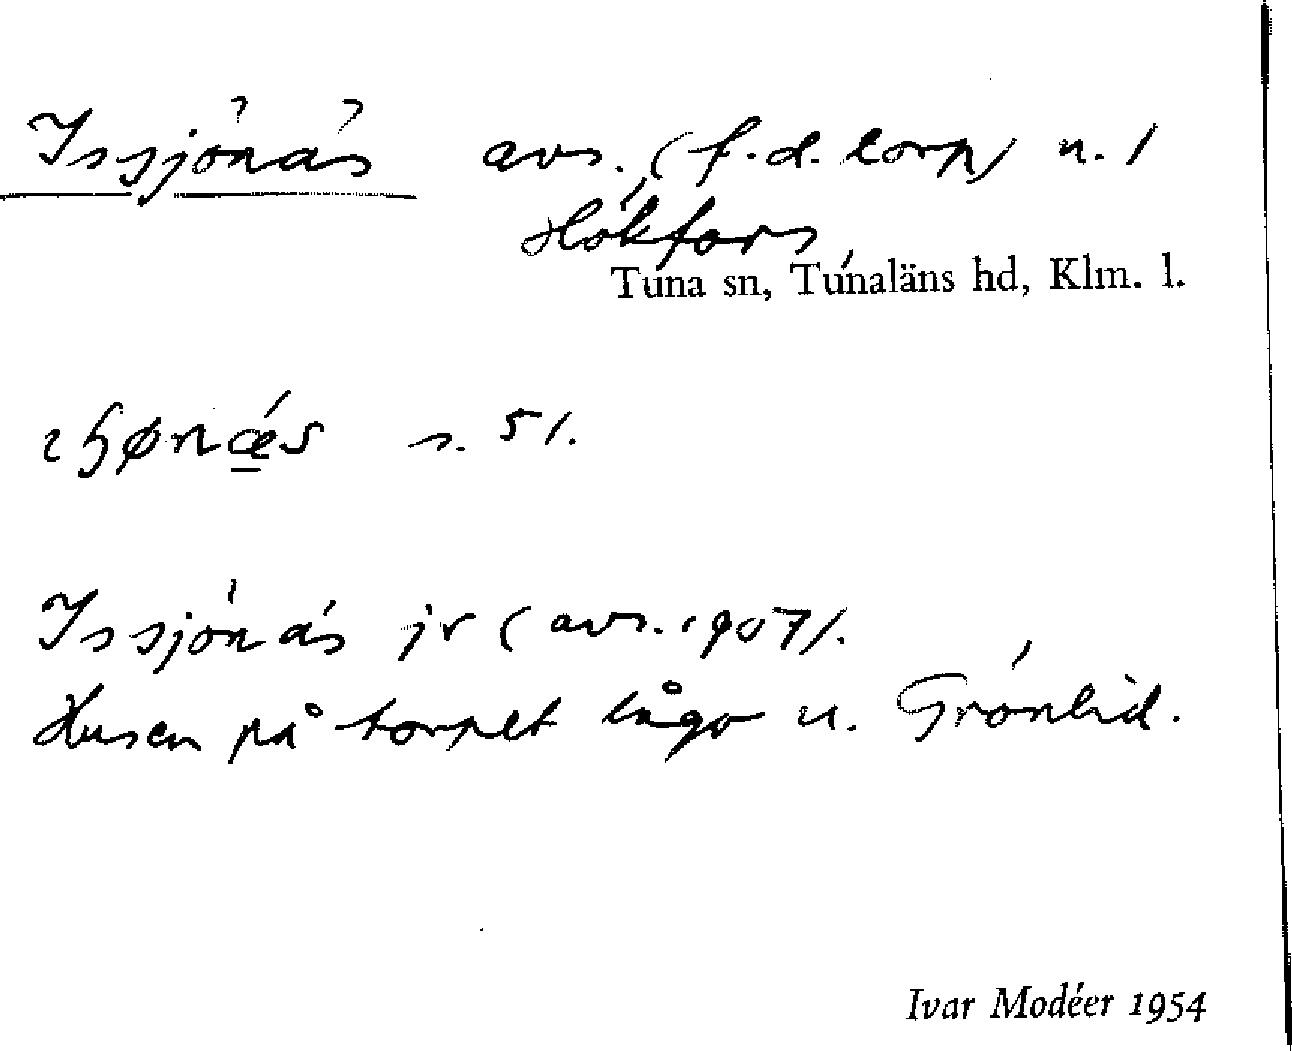 Issjönäs avs. (f.d. torp) u. /
Hökfors
Tuna sn, Tunaläns hd, Klm. l.
ɿɧønǽ̱s s. 51.
Issjönäs jr (avs. 1907).
Husen på torpet lågo u. Grönlid.
Ivar Modéer 1954